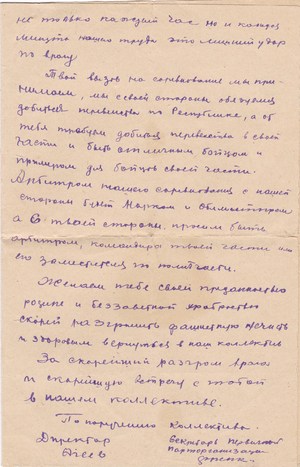 не только каждый час но и каждая
минута нашего труда это лишний удар
по врагу.
Твой вызов на соревнование мы при-
нимаем, мы с своей стороны обязуемся
добиться первенства по Республике, а от
тебя требуем добиться первенства в своей
части и быть отличным бойцом и
примером для бойцов своей части.
Арбитром нашего соревнования с нашей
стороны будет Нарком и
а с твоей стороны, просим быть
арбитром, командира твоей части или
его заместителя по политчасти.
Желаем тебе своей преданностью
родине и беззаветной храбростью
скорей разгромить фашистскую нечисть
и здоровым вернуться в наш коллектив
За скорейший разгром врага
и скорейшую встречу с тобой
в нашем коллективе.
По поручению коллектива.
Директор Секретарь первичной
парторганизации